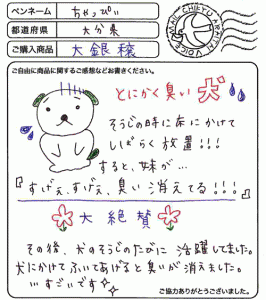 ペンネーム ちゃっぴぃ
都道府県 大分県
ご購入商品 大銀穣
MAIL CHIKYU
VOICE
ご自由に商品に関するご感想などお書きください。
とにかく臭い犬
そうじの時に床にかけて
しばらく放置!!!
すると、妹が…
『すげぇ、すげぇ、臭い消えてる!!!』
大絶賛
その後、犬のそうじのたびに活躍してました。
犬にかけてふいてあげると臭いが消えました。
!!!すごいです
ご協力ありがとうございました。